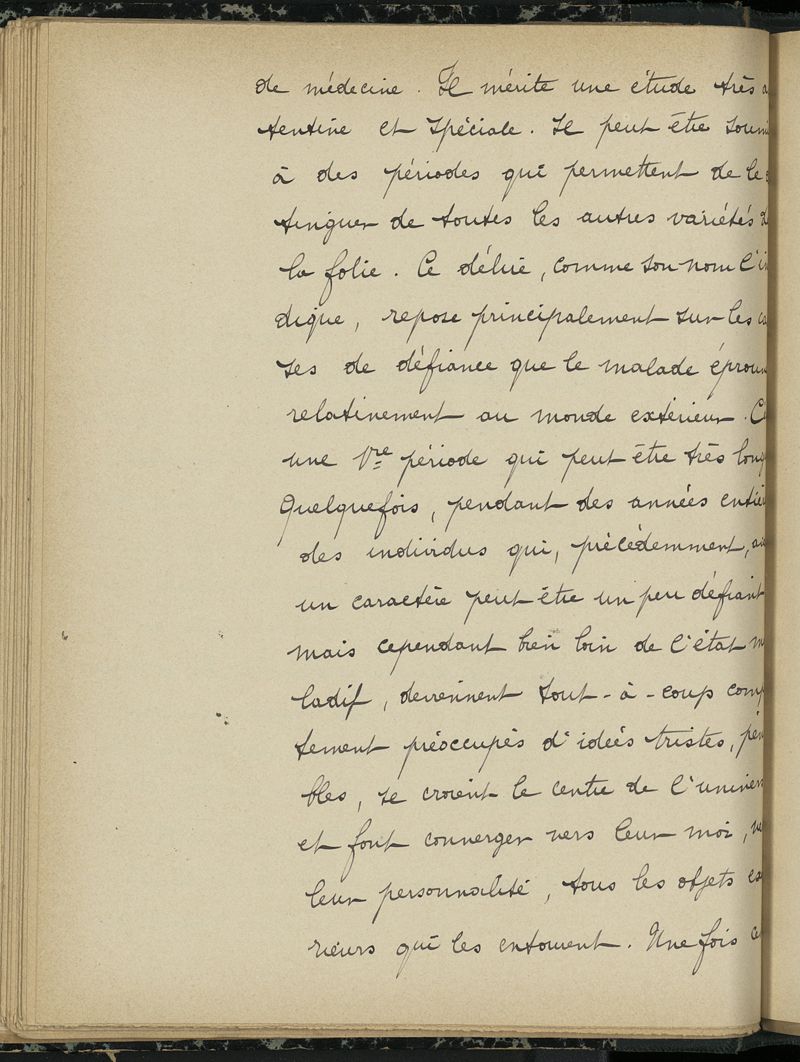 de médecine. Il mérite une étude très a
tentive et spéciale. Il peut être soumi
à des périodes qui permettent de le
tinguer de toutes les autres variétés d
la folie. Ce délire, comme son nom l'in
dique, repose principalement sur les ca
ses de défiance que le malade éprouv
relativement au monde extérieur. C'
une 1re période qui peut être très long
Quelquefois, pendant des années entiè
des individus qui, précédemment, av
un caractère peut être un peu défiant
mais cependant bien loin de l'état m
ladif, deviennent tout-à-coup comp
tement préoccupés d'idées tristes, pén
bles, se croient le centre de l'univer
et font converger vers leur moi, ve
leur personnalité, tous les objets ex
rieurs qui les entourent. Une fois ce